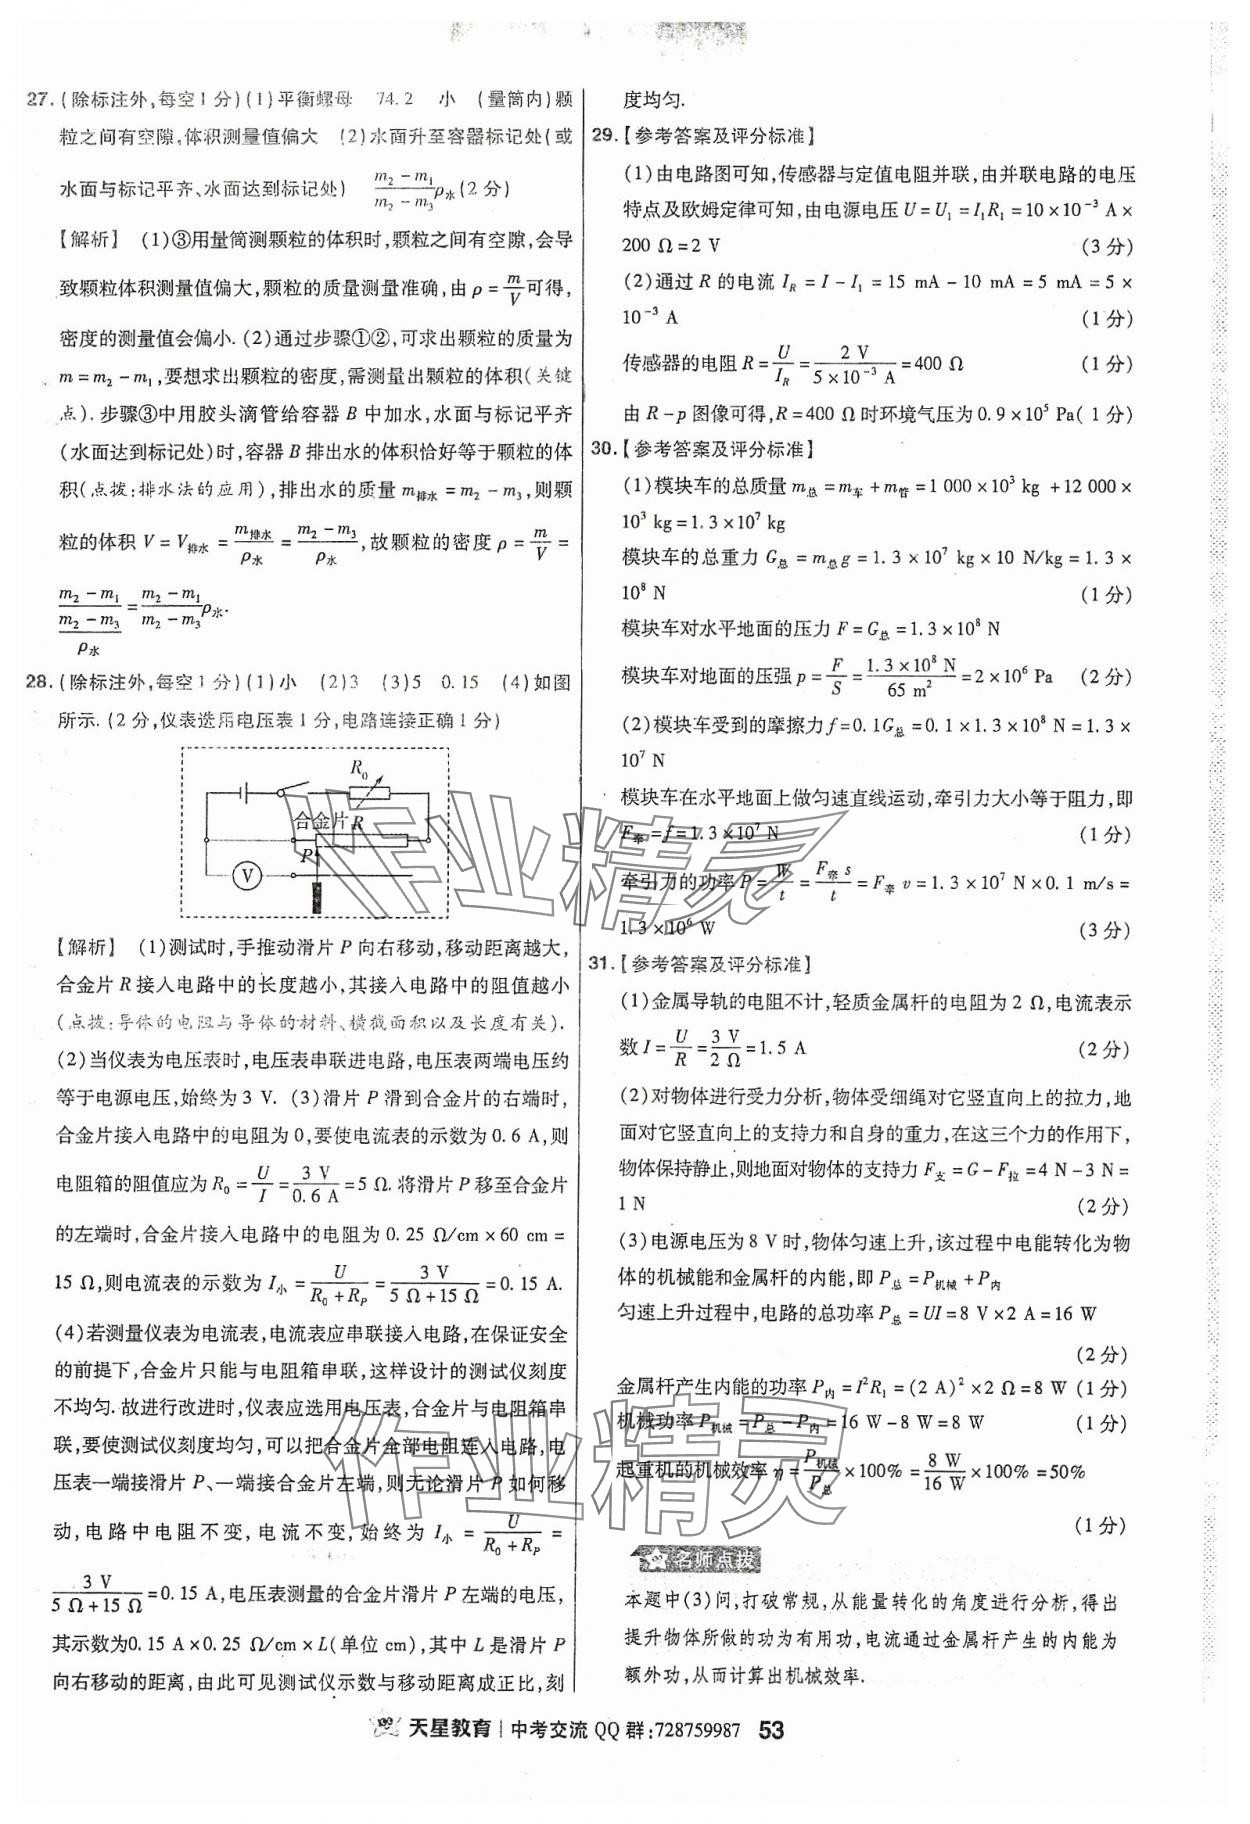 27. (除标注外,每空1分)(1)平衡螺母 74.2 小 (量筒内)颗
粒之间有空隙,体积测量值偏大 (2)水面升至容器标记处(或
水面与标记平齐、水面达到标记处) (m₂-m₁)/(m₂-m₃)ρ水(2分)
【解析】 (1)③用量筒测颗粒的体积时,颗粒之间有空隙,会导
致颗粒体积测量值偏大,颗粒的质量测量准确,由ρ=m/V可得,
密度的测量值会偏小. (2)通过步骤①②,可求出颗粒的质量为
m=m₂-m₁,要想求出颗粒的密度,需测量出颗粒的体积(关键
点). 步骤③中用胶头滴管给容器B中加水,水面与标记平齐
(水面达到标记处)时,容器B排出水的体积恰好等于颗粒的体
积(点拨:排水法的应用),排出水的质量m排水=m₂-m₃,则颗
粒的体积V=V排水=m排水/ρ水=(m₂-m₃)/ρ水,故颗粒的密度ρ=m/V=
(m₂-m₁)/((m₂-m₃)/ρ水)=(m₂-m₁)/(m₂-m₃)ρ水.
28. (除标注外,每空1分)(1)小 (2)3 (3)5 0.15 (4)如图
所示. (2分,仪表选用电压表1分,电路连接正确1分)
R₀
合金片R
P
V
【解析】 (1)测试时,手推动滑片P向右移动,移动距离越大,
合金片R接入电路中的长度越小,其接入电路中的阻值越小
(点拨:导体的电阻与导体的材料、横截面积以及长度有关).
(2)当仪表为电压表时,电压表串联进电路,电压表两端电压约
等于电源电压,始终为3 V. (3)滑片P滑到合金片的右端时,
合金片接入电路中的电阻为0,要使电流表的示数为0.6 A,则
电阻箱的阻值应为R₀=U/I=3 V/0.6 A=5 Ω. 将滑片P移至合金片
的左端时,合金片接入电路中的电阻为0.25 Ω/cm×60 cm=
15 Ω,则电流表的示数为I小=U/(R₀+R_P)=3 V/(5 Ω+15 Ω)=0.15 A.
(4)若测量仪表为电流表,电流表应串联接入电路,在保证安全
的前提下,合金片只能与电阻箱串联,这样设计的测试仪刻度
不均匀. 故进行改进时,仪表应选用电压表,合金片与电阻箱串
联,要使测试仪刻度均匀,可以把合金片全部电阻连入电路,电
压表一端接滑片P、一端接合金片左端,则无论滑片P如何移
动,电路中电阻不变,电流不变,始终为I小=U/(R₀+R_P)=
3 V/(5 Ω+15 Ω)=0.15 A,电压表测量的合金片滑片P左端的电压,
其示数为0.15 A×0.25 Ω/cm×L(单位cm),其中L是滑片P
向右移动的距离,由此可见测试仪示数与移动距离成正比,刻
度均匀.
29.【参考答案及评分标准】
(1)由电路图可知,传感器与定值电阻并联,由并联电路的电压
特点及欧姆定律可知,由电源电压U=U₁=I₁R₁=10×10⁻³ A×
200 Ω=2 V (3分)
(2)通过R的电流I_R=I-I₁=15 mA-10 mA=5 mA=5×
10⁻³ A (1分)
传感器的电阻R=U/I_R=2 V/(5×10⁻³ A)=400 Ω (1分)
由R-p图像可得,R=400 Ω时环境气压为0.9×10⁵ Pa(1分)
30.【参考答案及评分标准】
(1)模块车的总质量m总=m车+m管=1 000×10³ kg+12 000×
10³ kg=1.3×10⁷ kg
模块车的总重力G总=m总g=1.3×10⁷ kg×10 N/kg=1.3×
10⁸ N (1分)
模块车对水平地面的压力F=G总=1.3×10⁸ N
模块车对地面的压强p=F/S=1.3×10⁸ N/65 m²=2×10⁶ Pa (2分)
(2)模块车受到的摩擦力f=0.1G总=0.1×1.3×10⁸ N=1.3×
10⁷ N
模块车在水平地面上做匀速直线运动,牵引力大小等于阻力,即
F牵=f=1.3×10⁷ N (1分)
牵引力的功率P=W/t=F牵s/t=F牵v=1.3×10⁷ N×0.1 m/s=
1.3×10⁶ W (3分)
31.【参考答案及评分标准】
(1)金属导轨的电阻不计,轻质金属杆的电阻为2 Ω,电流表示
数I=U/R=3 V/2 Ω=1.5 A (2分)
(2)对物体进行受力分析,物体受细绳对它竖直向上的拉力,地
面对它竖直向上的支持力和自身的重力,在这三个力的作用下,
物体保持静止,则地面对物体的支持力F支=G-F拉=4 N-3 N=
1 N (2分)
(3)电源电压为8 V时,物体匀速上升,该过程中电能转化为物
体的机械能和金属杆的内能,即P总=P机械+P内
匀速上升过程中,电路的总功率P总=UI=8 V×2 A=16 W
(2分)
金属杆产生内能的功率P内=I²R₁=(2 A)²×2 Ω=8 W(1分)
机械功率P机械=P总-P内=16 W-8 W=8 W (1分)
起重机的机械效率η=P机械/P总×100%=8 W/16 W×100%=50%
(1分)
名师点拨
本题中(3)问,打破常规,从能量转化的角度进行分析,得出
提升物体所做的功为有用功,电流通过金属杆产生的内能为
额外功,从而计算出机械效率.
天星教育|中考交流QQ群:728759987 53
作业精灵
作业精灵